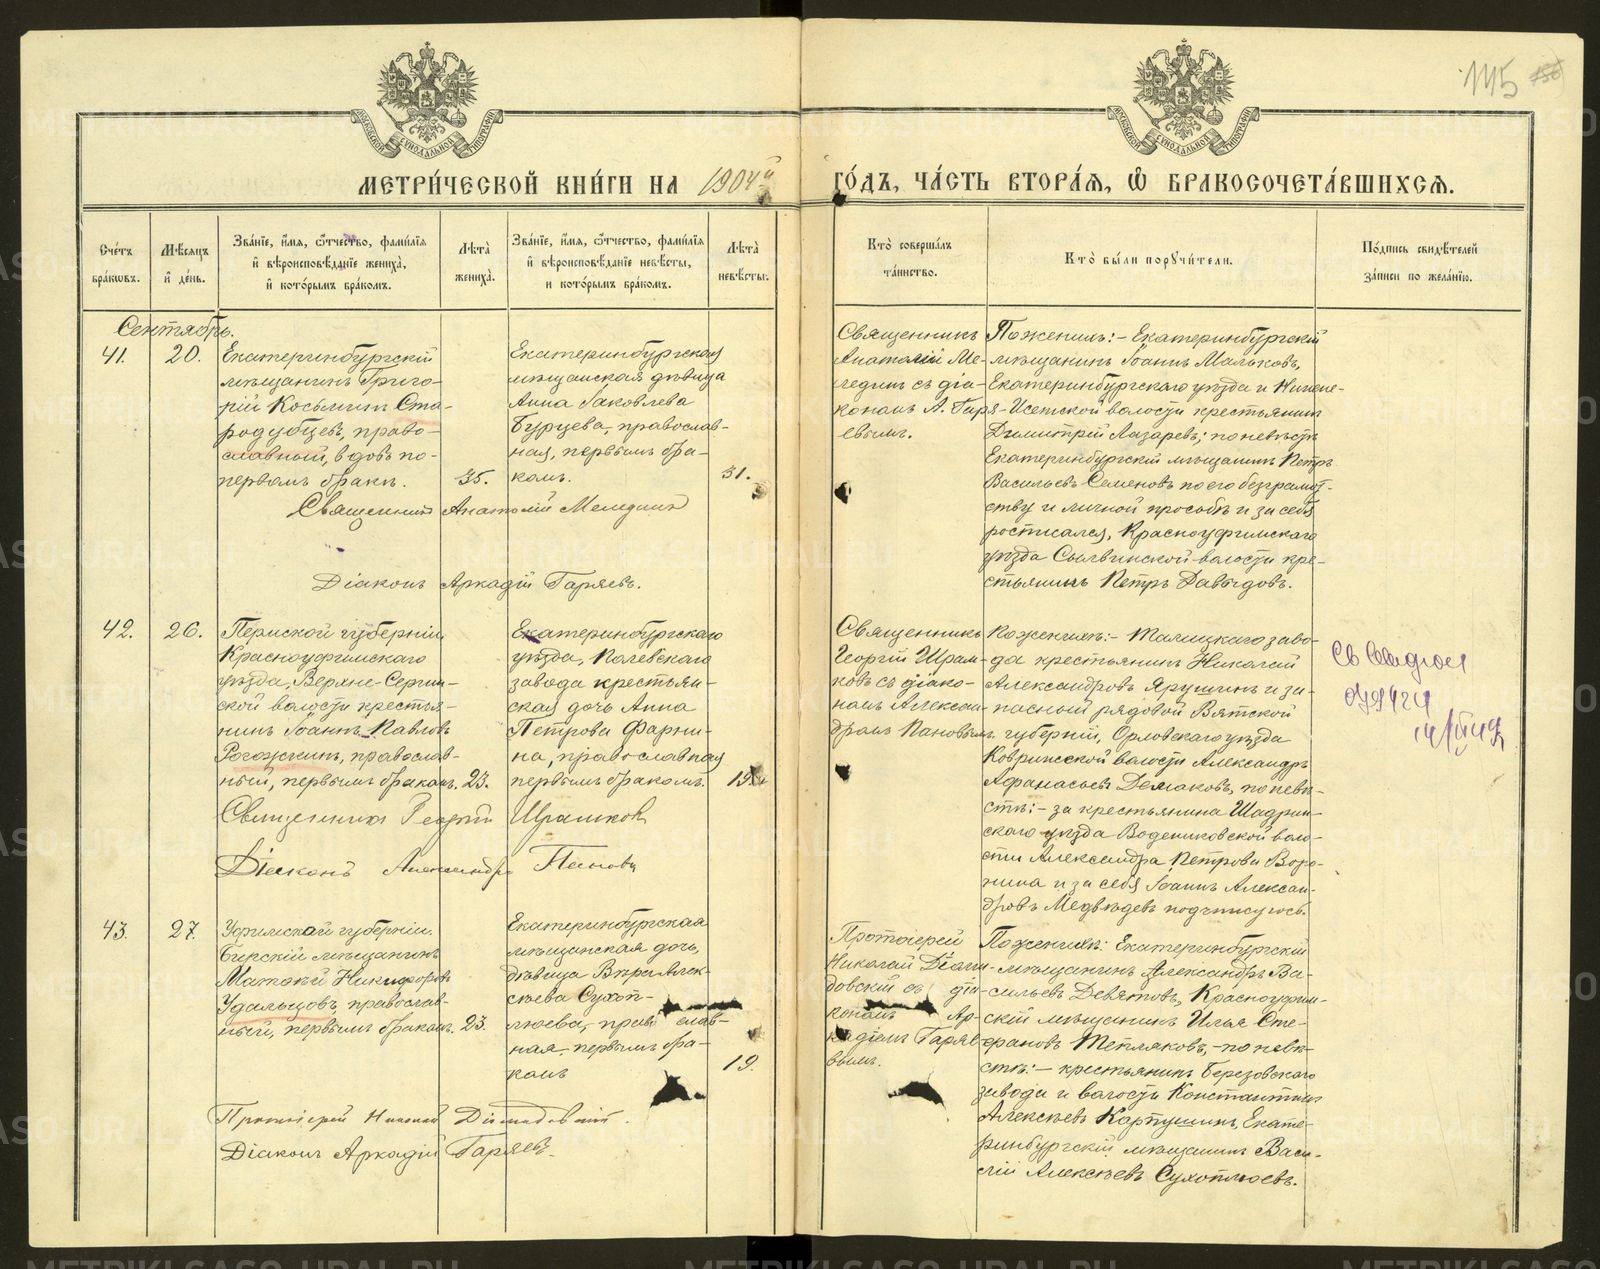 145
МЕТРИ́ЧЕСКОЙ КНИ́ГИ НА 1904й ГО́ДЪ, ЧА́СТЬ ВТОРА́Я, Ѽ БРАКОСОЧЕТА́ВШИХСЯ.
Сче́тъ бра́ковъ.
Мѣ́сяцъ и҆ де́нь.
Зва́нїе, и҆́мя, ѻ҆́тчество, фами́лїя и҆ вѣроисповѣ́данїе жениха̀, и҆ кото́рымъ бра́комъ.
Лѣ́та жениха̀.
Зва́нїе, и҆́мя, ѻ҆́тчество, фами́лїя и҆ вѣроисповѣ́данїе невѣ́сты, и кото́рымъ бра́комъ.
Лѣ́та невѣ́сты.
Кто̀ соверша́лъ та́инство.
Кто̀ бы́ли порꙋчи́тели.
По́дпись свидѣ́телей за́писи по жела́нїю.
Сентябрь.
41.
20.
Екатеринбургскій
мѣщанинъ Григо-
рій Косьминъ Ста-
родубцевъ, право-
славный, вдовъ по-
первомъ бракѣ.
35.
Екатеринбургская
мѣщанская дѣвица
Анна Іаковлева
Бурцева, православ-
ная, первымъ бра-
комъ.
31.
Священникъ Анатолій Мелединъ
Діаконъ Аркадій Гаряевъ.
Священникъ
Анатолій Ме-
лединъ съ діа-
кономъ А. Гаря-
евымъ.
По женихѣ:- Екатеринбургскій
мѣщанинъ Іоаннъ Мальковъ,
Екатеринбургскаго уѣзда и Нижне-
Исетской волости крестьянинъ
Димитрій Лазаревъ; по невѣстѣ
Екатеринбургскій мѣщанинъ Петръ
Васильевъ Семеновъ по его безграмот-
ству и личной просьбѣ и за себя
росписался, Красноуфимскаго
уѣзда Сылвинской волости кре-
стьянинъ Петръ Давыдовъ.
42.
26.
Пермской губерніи
Красноуфимскаго
уѣзда, Верхне-Сергин-
ской волости крестья-
нинъ Іоаннъ Павловъ
Рогожкинъ, православ-
ный, первымъ бракомъ.
23.
Екатеринбургскаго
уѣзда, Полевскаго
завода крестьян-
ская дочь Анна
Петрова Фарни-
на, православная
первымъ бракомъ.
Священникъ Георгій Ирашков
Діаконъ Александръ Пановъ
Священникъ
Георгій
съ діако-
номъ Алексан-
дромъ Пановымъ.
По женихѣ:- Талицкаго заво-
да крестьянинъ Николай
Александровъ Ярушинъ и за-
пасный рядовой Вятской
губерніи, Орловскаго уѣзда
Ковринской волости Александръ
Афанасьевъ Демаковъ, по невѣ-
стѣ:- за крестьянина Шадрин-
скаго уѣзда Водениковской воло-
сти Александра Петрова Воро-
нина и за себя Іоаннъ Алексан-
дровъ Медвѣдевъ подписуюсь.
43.
27.
Уфимской губерніи.
Бирскій мѣщанинъ
Матѳей Никифоровъ
Удальцовъ, православ-
ный, первымъ бракомъ.
23.
Екатеринбургская
мѣщанская дочь,
дѣвица Вѣра Алек-
сѣева Сухоп-
люева, православ-
ная, первымъ бра-
комъ
19.
Протоіерей Николай Діомидовскій.
Діаконъ Аркадій Гаряевъ.
Протоіерей
Николай Діоми-
довскій съ діа-
кономъ Ар-
кадіемъ Гаряе-
вымъ.
По женихѣ: Екатеринбургскій
мѣщанинъ Александръ Ва-
сильевъ Девятовъ, Красноуфим-
скій мѣщанинъ Илья Сте-
фановъ Тепляковъ,- по невѣ-
стѣ:- крестьянинъ Березовскаго
завода и волости Константинъ
Алексѣевъ Карпушинъ, Екате-
ринбургскій мѣщанинъ Васи-
лій Алексѣевъ Сухоплюевъ.